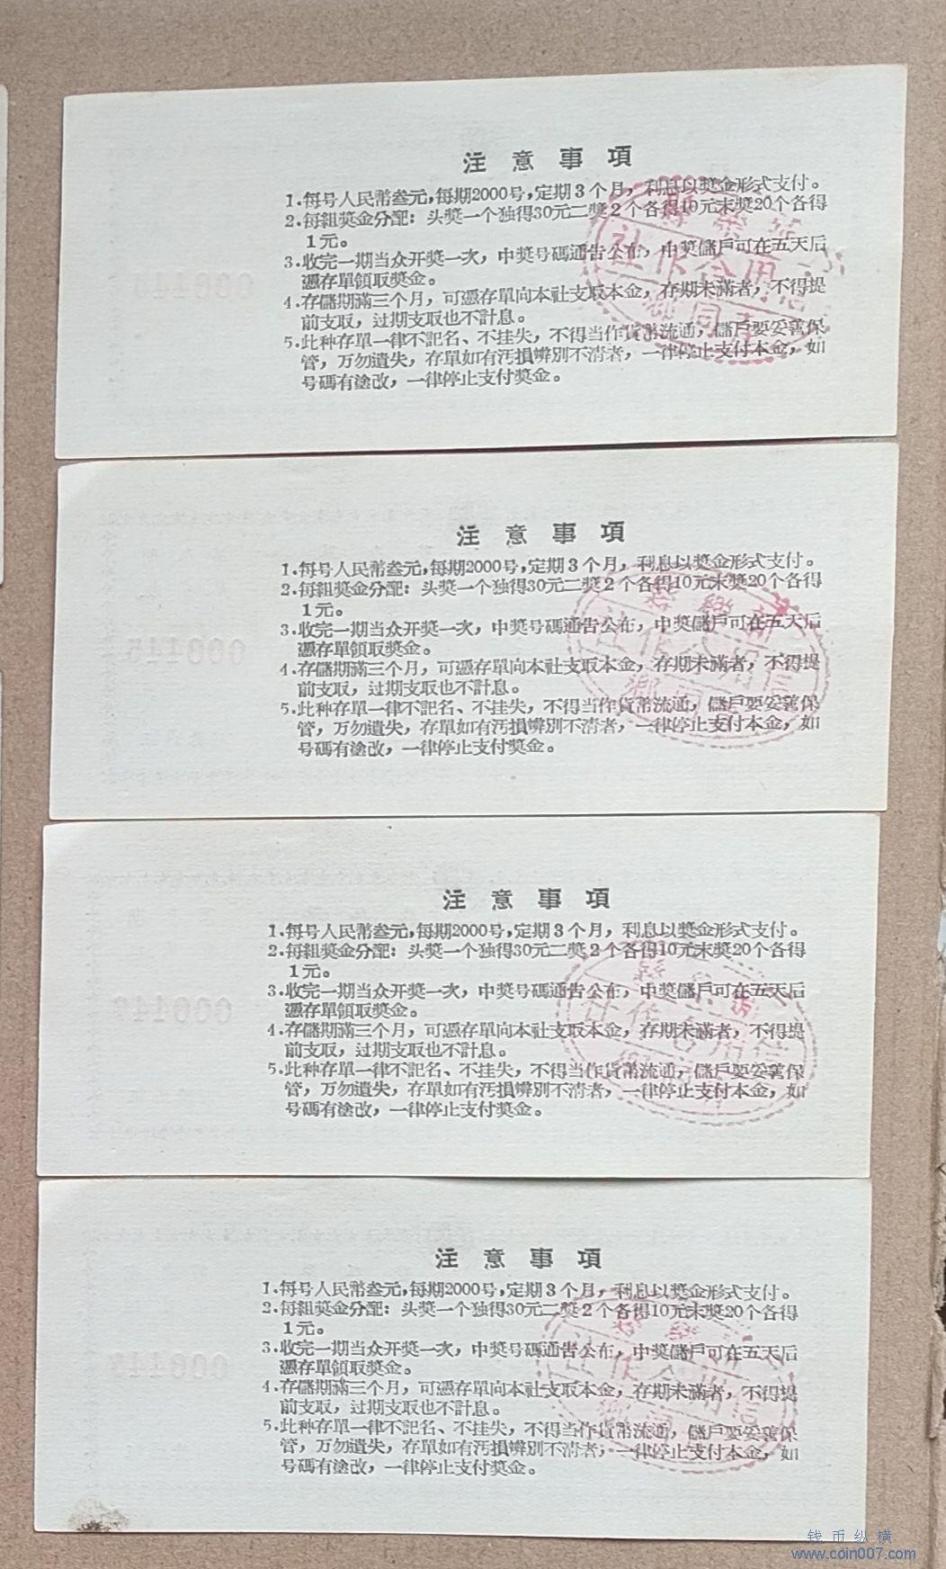 注意事項
1.每号人民幣叁元,每期2000号,定期3个月,利息以奬金形式支付。
2.每組奬金分配:头奬一个独得30元二奬2个各得10元末奬20个各得
1元。
3.收完一期当众开奬一次,中奬号碼通告公布,中奬儲戶可在五天后
憑存單領取奬金。
4.存儲期滿三个月,可憑存單向本社支取本金,存期未滿者,不得提
前支取,过期支取也不計息。
5.此种存單一律不記名、不挂失,不得当作貨幣流通,儲戶要妥善保
管,万勿遺失,存單如有汚損辨別不清者,一律停止支付本金,如
号碼有塗改,一律停止支付奬金。
注意事項
1.每号人民幣叁元,每期2000号,定期3个月,利息以奬金形式支付。
2.每組奬金分配:头奬一个独得30元二奬2个各得10元末奬20个各得
1元。
3.收完一期当众开奬一次,中奬号碼通告公布,中奬儲戶可在五天后
憑存單領取奬金。
4.存儲期滿三个月,可憑存單向本社支取本金,存期未滿者,不得提
前支取,过期支取也不計息。
5.此种存單一律不記名、不挂失,不得当作貨幣流通,儲戶要妥善保
管,万勿遺失,存單如有汚損辨別不清者,一律停止支付本金,如
号碼有塗改,一律停止支付奬金。
注意事項
1.每号人民幣叁元,每期2000号,定期3个月,利息以奬金形式支付。
2.每組奬金分配:头奬一个独得30元二奬2个各得10元末奬20个各得
1元。
3.收完一期当众开奬一次,中奬号碼通告公布,中奬儲戶可在五天后
憑存單領取奬金。
4.存儲期滿三个月,可憑存單向本社支取本金,存期未滿者,不得提
前支取,过期支取也不計息。
5.此种存單一律不記名、不挂失,不得当作貨幣流通,儲戶要妥善保
管,万勿遺失,存單如有汚損辨別不清者,一律停止支付本金,如
号碼有塗改,一律停止支付奬金。
注意事項
1.每号人民幣叁元,每期2000号,定期3个月,利息以奬金形式支付。
2.每組奬金分配:头奬一个独得30元二奬2个各得10元末奬20个各得
1元。
3.收完一期当众开奬一次,中奬号碼通告公布,中奬儲戶可在五天后
憑存單領取奬金。
4.存儲期滿三个月,可憑存單向本社支取本金,存期未滿者,不得提
前支取,过期支取也不計息。
5.此种存單一律不記名、不挂失,不得当作貨幣流通,儲戶要妥善保
管,万勿遺失,存單如有汚損辨別不清者,一律停止支付本金,如
号碼有塗改,一律停止支付奬金。
钱币纵横
www.coin007.com